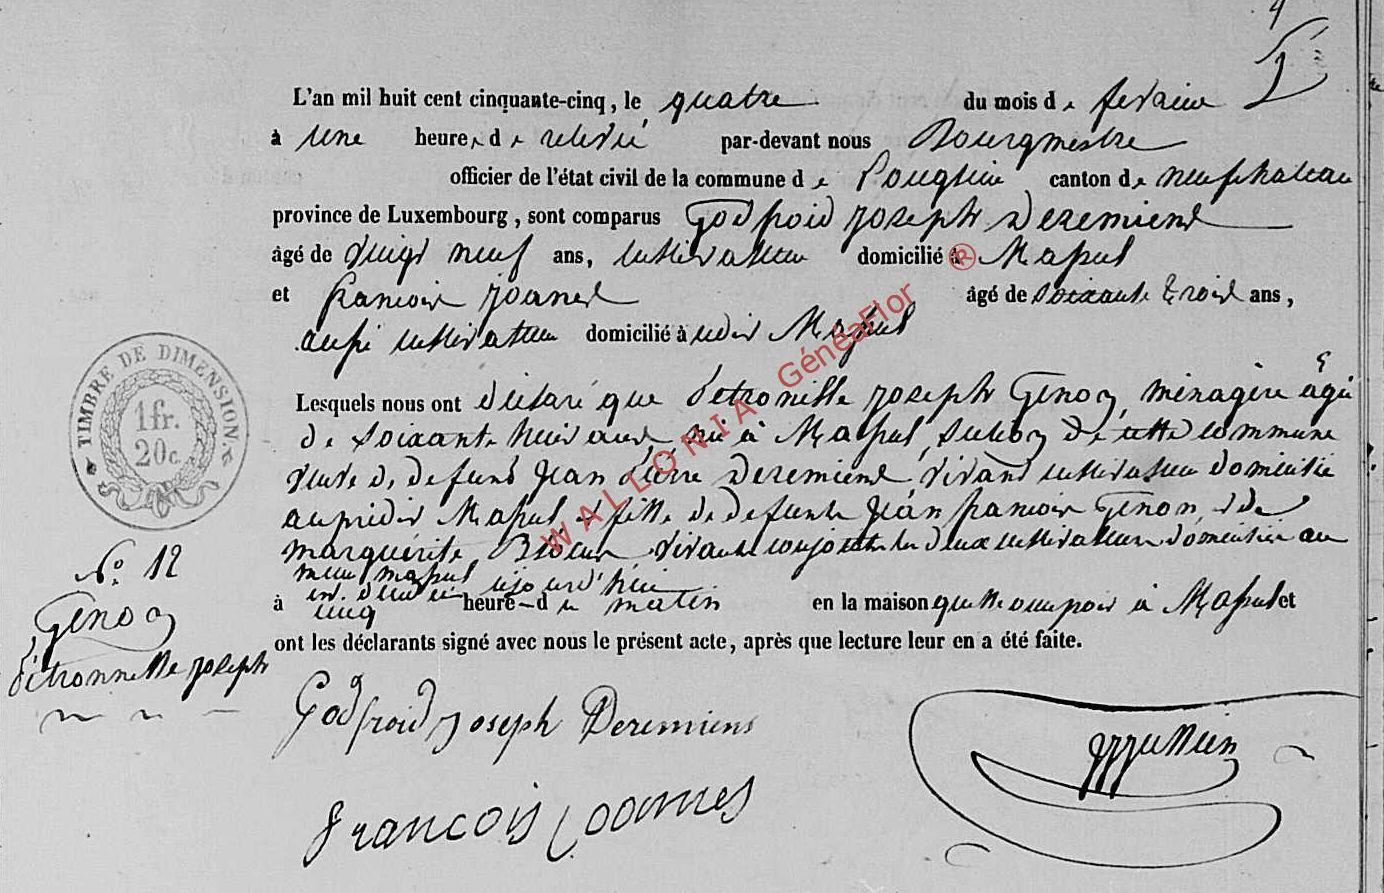 4
L'an mil huit cent cinquante-cinq, le quatre du mois de fevrier
à une heure de relevé par-devant nous Bourgmestre
officier de l'état civil de la commune de canton de neufchateau
province de Luxembourg, sont comparus Godfroid joseph Deremiens
âgé de vingt neuf ans, cultivateur domicilié à Massul
et francois joanes âgé de soixante trois ans,
aussi cultivateur domicilié à udit Massul
Lesquels nous ont déclaré que Petronille joseph Genon, ménagère agée
de soixante huit ans, née à Massul, de cette commune
veuve de defunt Jean Pierre Deremiens, vivant cultivateur domicilié
au prédit Massul et fille de defunts Jean francois Genon, et de
marguérite vivants conjoints les deux cultivateurs domiciliés au
meme massul
est décédée aujourd'hui
à cinq heure de matin en la maison quelle occupoit à Massul et
ont les déclarants signé avec nous le présent acte, après que lecture leur en a été faite.
TIMBRE DE DIMENSION.
1 fr.
20 c.
N° 12
Genon
Pétronnille joseph
Godfroid Joseph Deremiens
francois Joannes
WALLONIA GénéaFlor ®